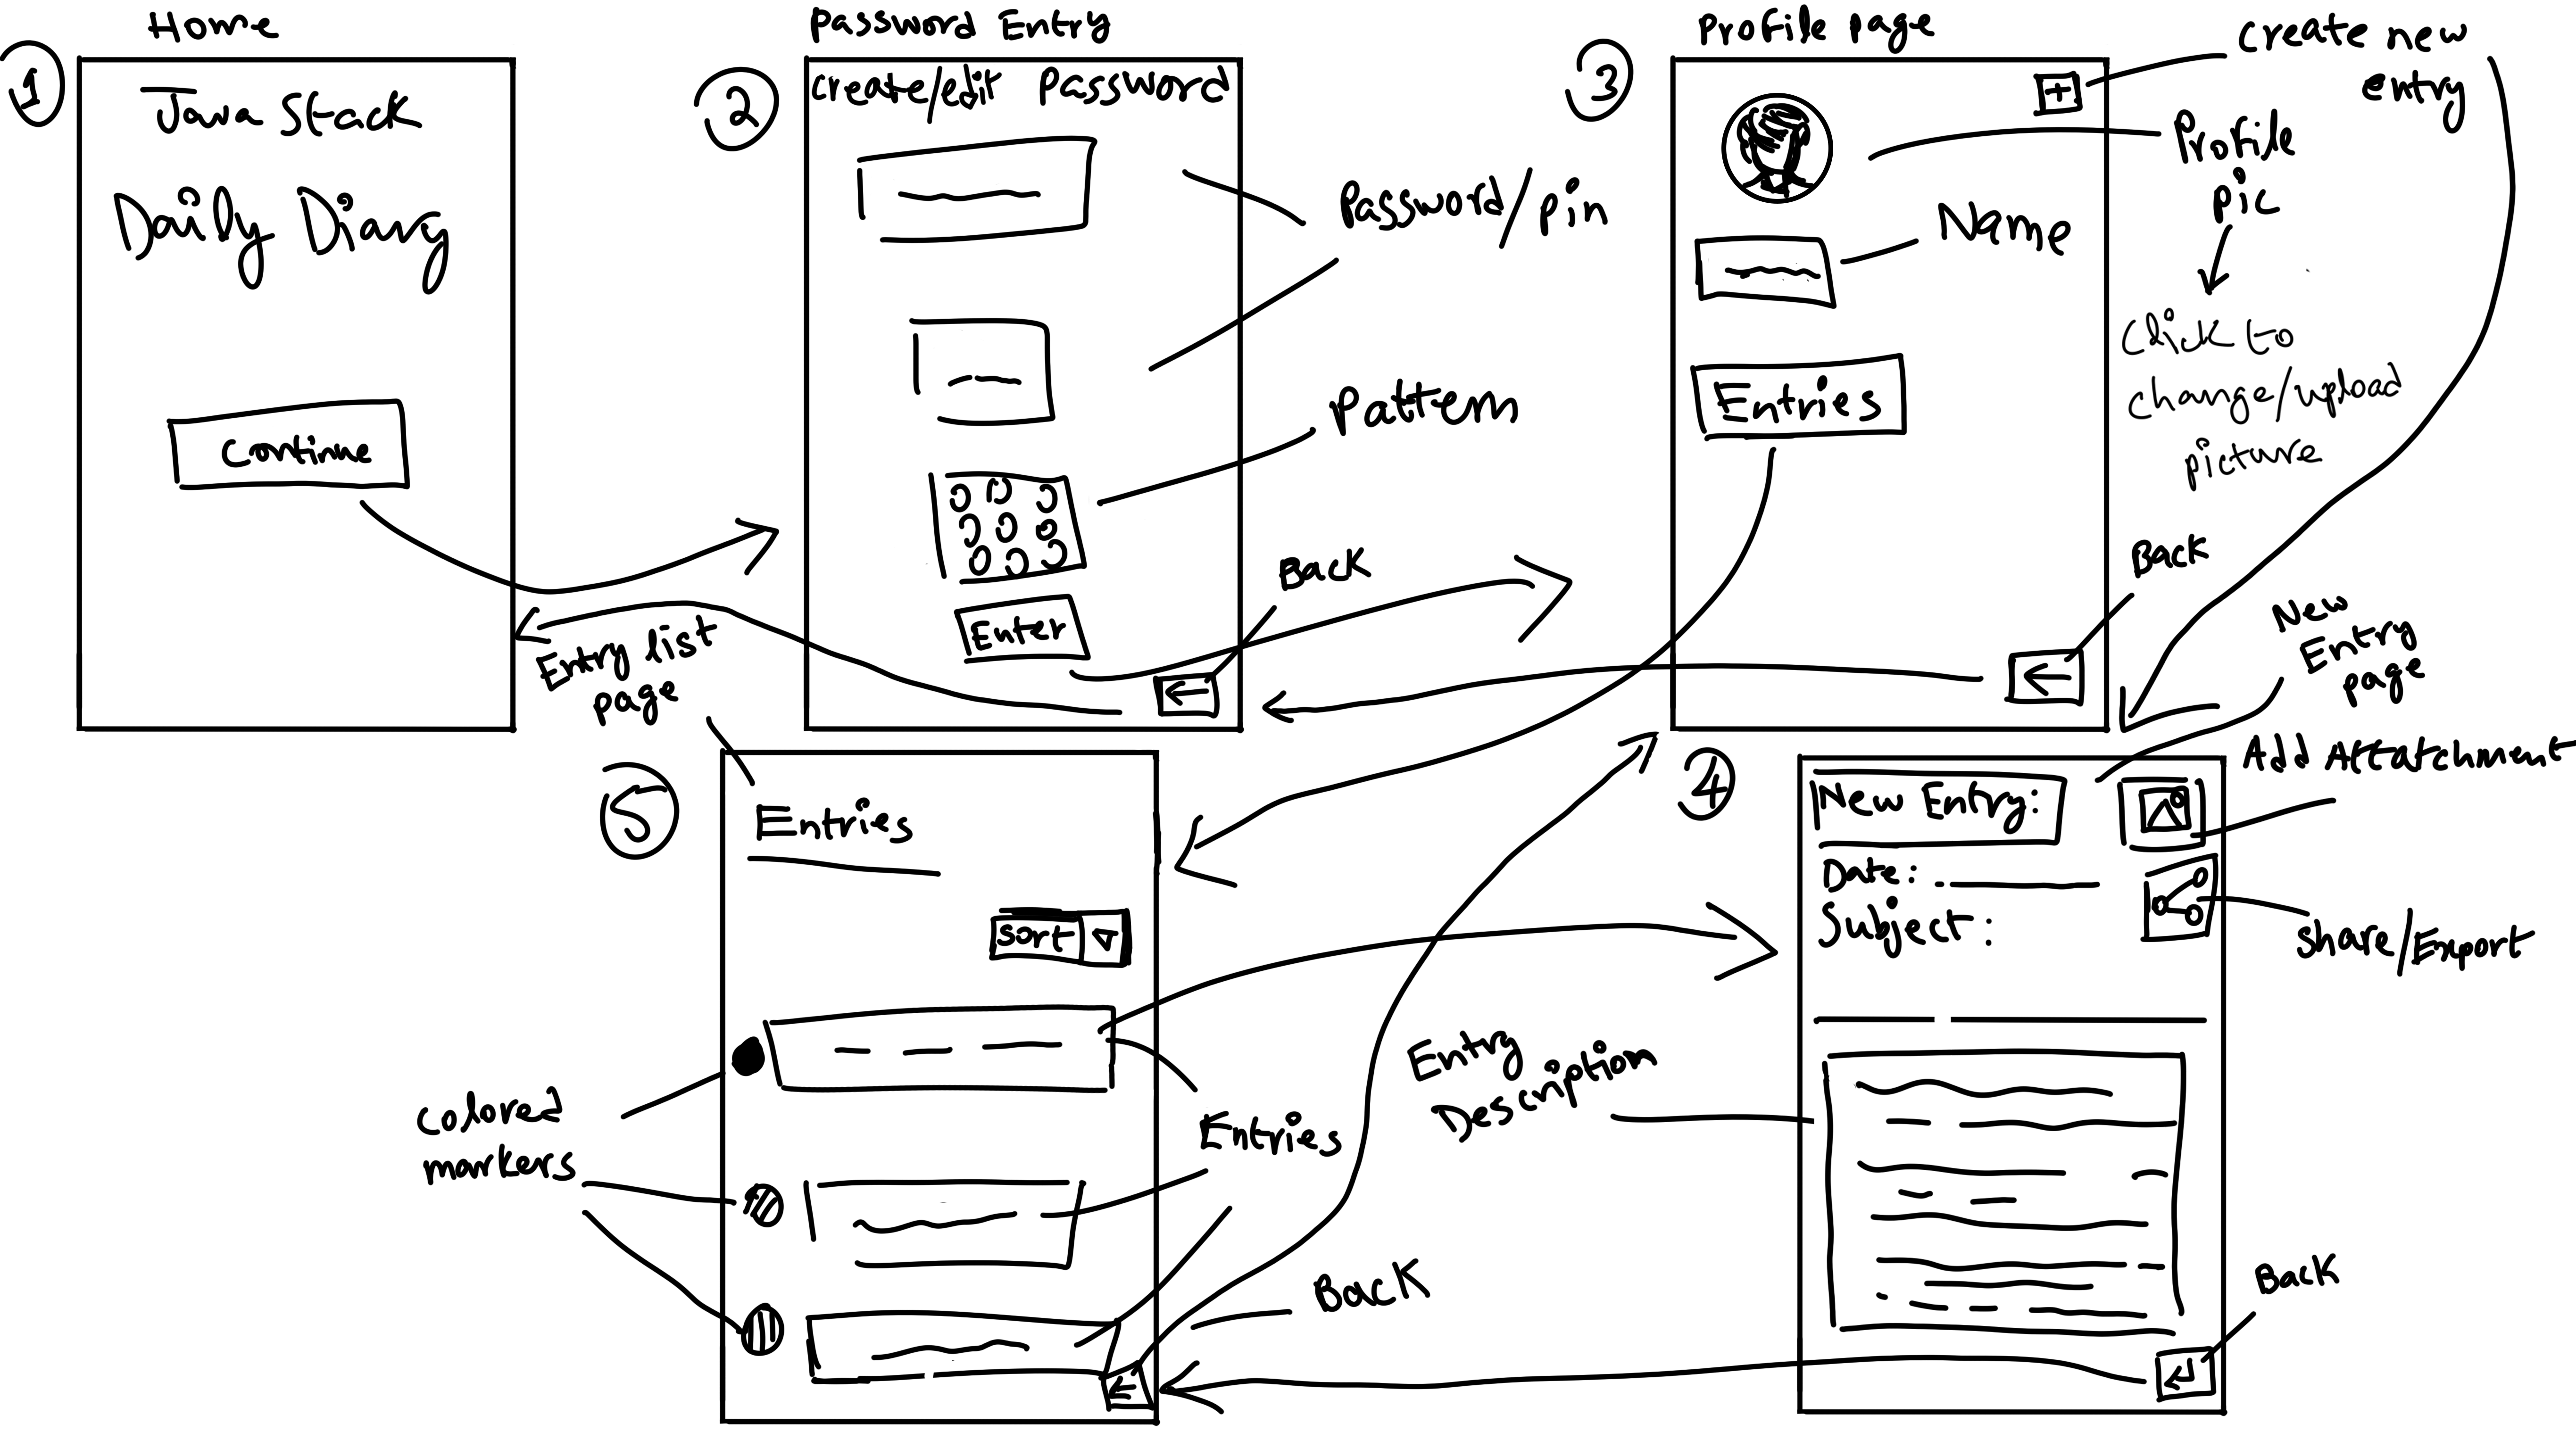 Home
1
Java Stack
Daily Diary
Continue
Password Entry
2
Create/edit Password
Password/pin
Pattern
Enter
Back
Profile page
3
Create new
entry
Profile
pic
Name
Click to
change/upload
picture
Entries
Back
New
Entry
page
Entry list
page
5
Entries
Sort
Colored
markers
Entries
Back
4
New Entry:
Add Attatchment
Date:
Subject:
Share/Export
Entry
Description
Back